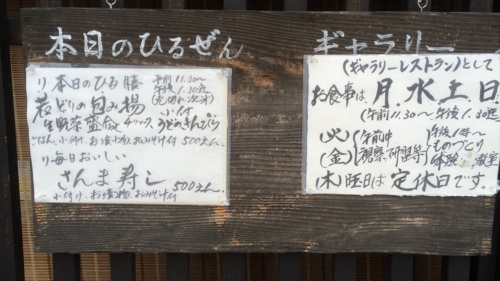 本日のひるぜん
り本日のひる膳
午前11.30~
午後1.30迄
(売切れ次第)
若どりの包み揚
小付
生野菜盛合
うどのきんぴら
ごはん、小付、お漬物、おみそ汁付 500えん。
り毎日おいしい
さんま寿し 500えん。
小付け、お漬物、おみそ汁付
ギャラリー
(ギャラリーレストラン)として
お食事は、月.水.土.日
(午前11.30~午後1.30迄)
(火)
(金)
午前中
視察、研習等
午後1時~
ものづくり
体験
(木)曜日は定休日です。